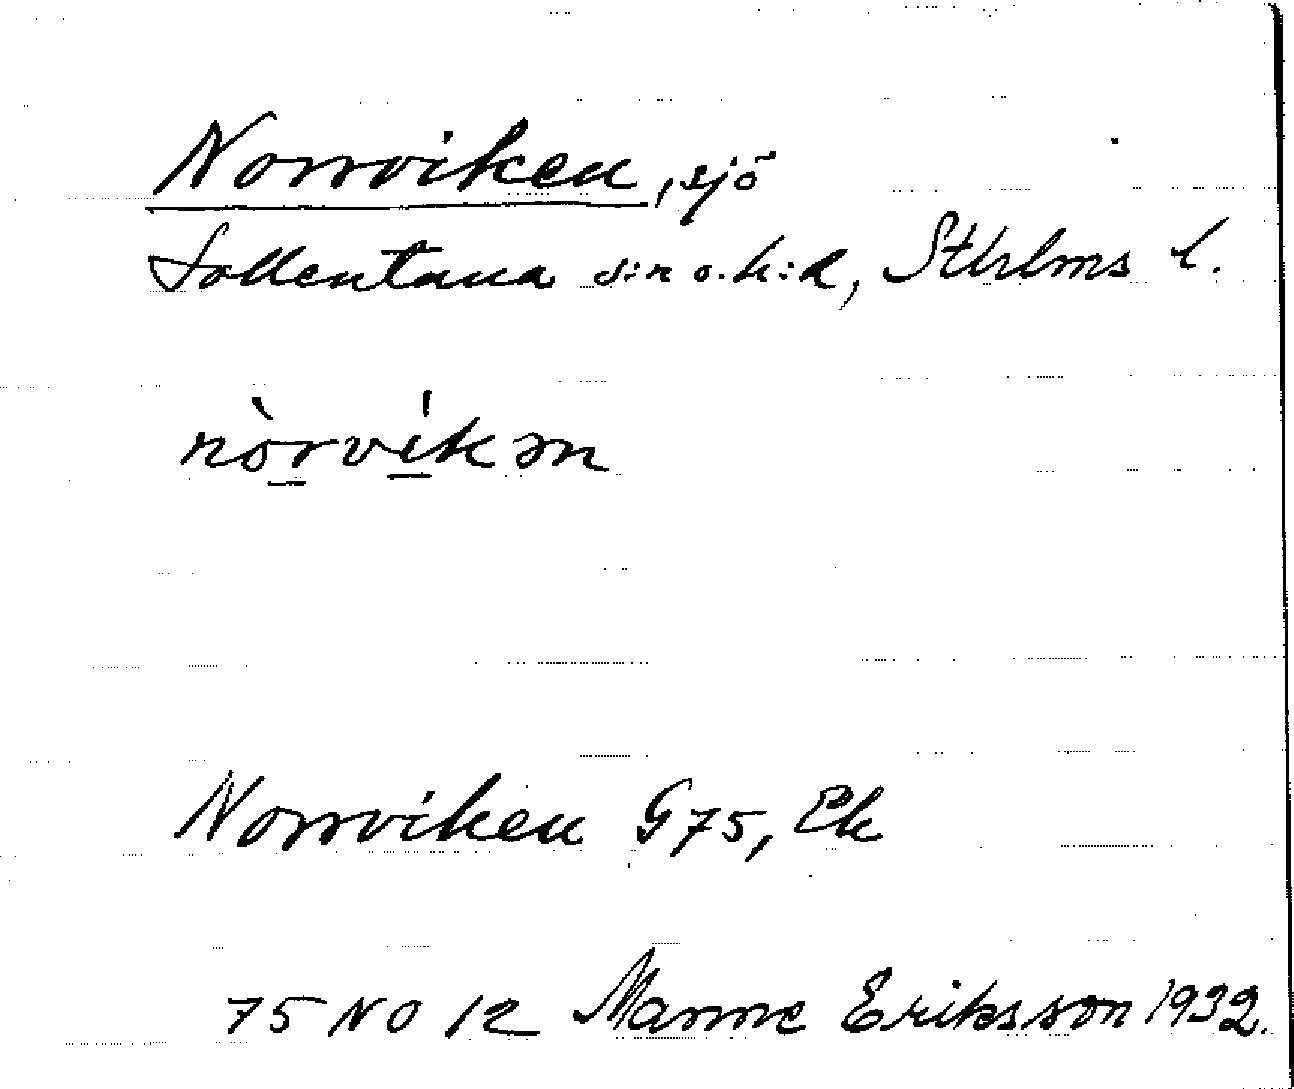 Norrviken, sjö
Sollentuna s:n o. h:d, Sthlms l.
nòrvíkən
Norrviken G75, Ek
75 NO 12 Manne Eriksson 1932.